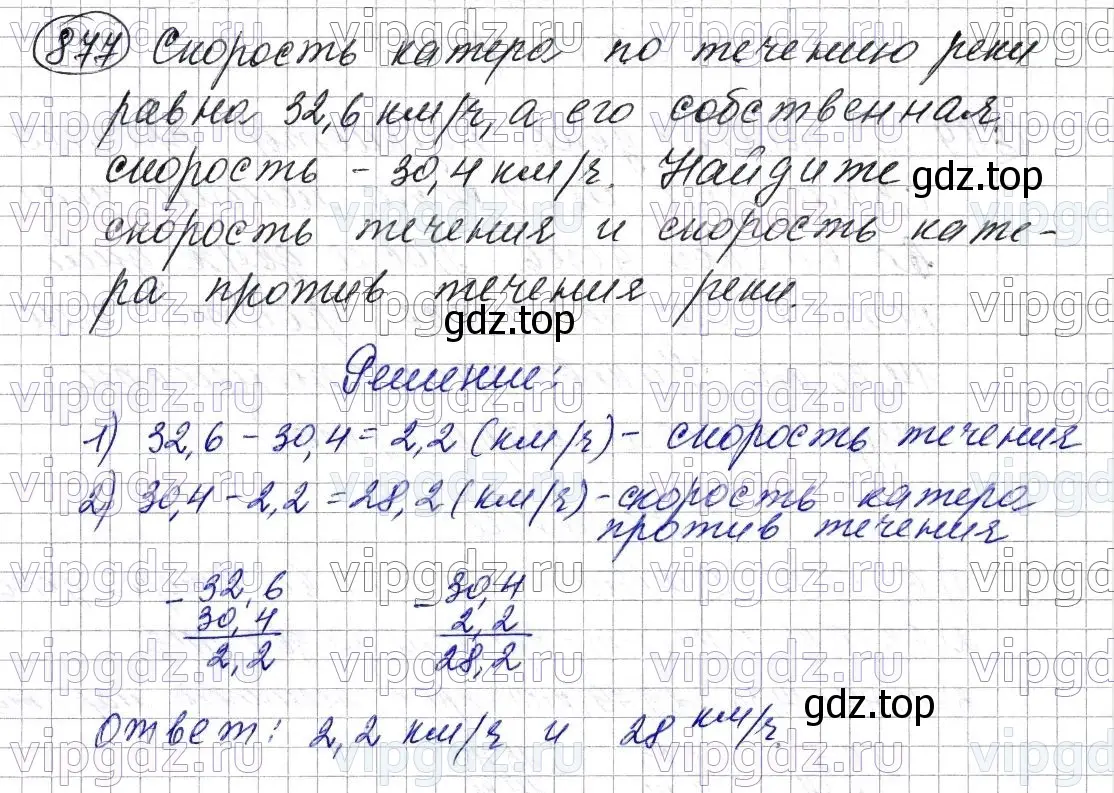 877 Скорость катера по течению реки
равна 32,6 км/ч, а его собственная
скорость - 30,4 км/ч. Найдите
gdz.top
скорость течения и скорость кате-
ра против течения реки.
gdz.top
Решение:
1) 32,6 - 30,4 = 2,2 (км/ч) - скорость течения
2) 30,4 - 2,2 = 28,2 (км/ч) - скорость катера
против течения
- 32,6 - 30,4
30,4 2,2
2,2 28,2
gdz.top
ответ: 2,2 км/ч и 28 км/ч
vipgdz.ru